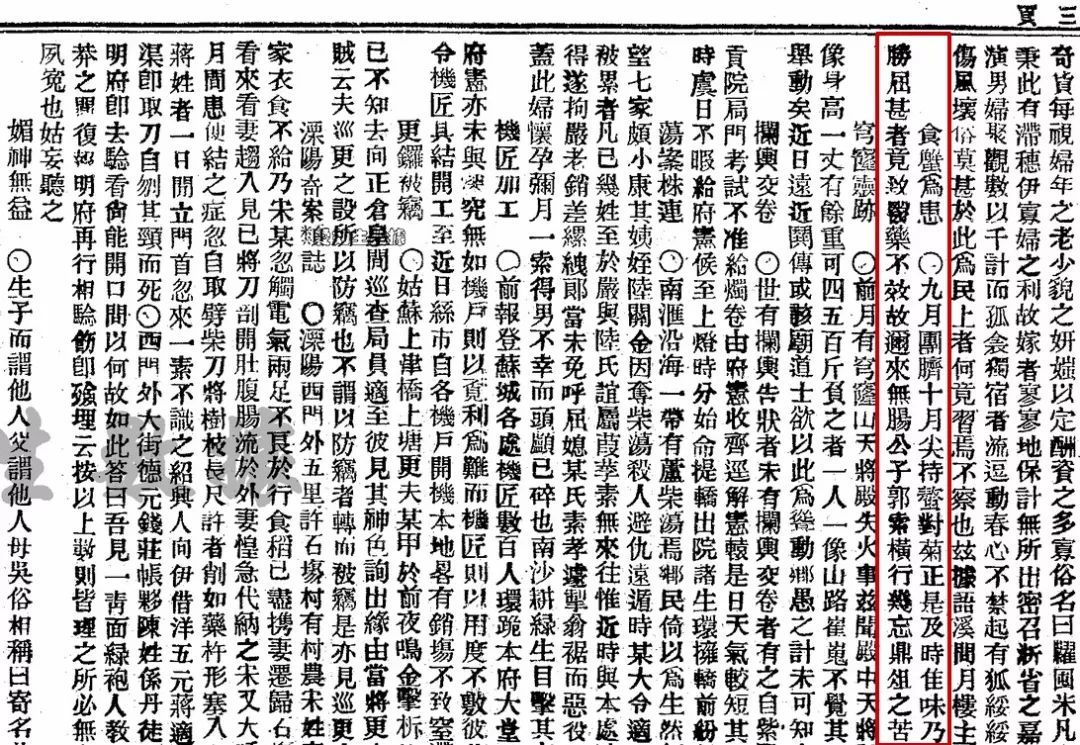 三
頁
奇貨每視婦年之老少貌之妍媸以定酬資之多寡俗名曰糶國米凡
秉此有滯穗伊寡婦之利故嫁者寥寥地保計無所出密召浙省之嘉
演男婦聚觀數以千計而孤衾獨宿者流逗動春心不禁起有狐綏綏
傷風壞俗莫甚於此為民上者何竟習焉不察也茲據語溪間月樓主
食蟹為患 ○九月團臍十月尖持螯對菊正是及時佳味乃
勝屈甚者竟致醫藥不效故邇來無腸公子郭索橫行幾忘鼎俎之苦
穹窿靈跡 ○前月有穹窿山天將殿失火事茲聞殿中天將
像身高一丈有餘重可四五百斤負之者一人一像山路崔嵬不覺其
舉動矣近日遠近鬨傳或該廟道士欲以此為聳動鄉愚之計未可知
攔輿交卷 ○世有攔輿告狀者未有攔輿交卷者有之自紫
貢院局門考試不准給燭卷由府憲收齊逕解憲轅是日天氣較短其
時虞日不暇給府憲候至上燈時分始命提轎出院諸生環擁轎前紛
蕩案株連 ○南滙沿海一帶有蘆柴蕩焉鄉民倚以為生然
望七家頗小康其姨姪陸關金因奪柴蕩殺人避仇遠遁時某大令適
被累者凡已幾姓至於嚴與陸氏誼屬葭莩素無來往惟近時與本處
得遂拘嚴老銷差縲絏郎當未免呼屈媳某氏素孝遽牽翁裾而惡役
蓋此婦懷孕彌月一索得男不幸而頭顱已碎也南沙耕綠生目擊其
機匠加工 ○前報登蘇城各處機匠數百人環跪本府大堂
府憲亦未與深究無如機戶則以覓利為難而機匠則以用度不敷彼
令機匠具結開工至近日絲市自各機戶開機本地畧有銷塲不致窒
更鑼被竊 ○姑蘇上津橋上塘更夫某甲於前夜鳴金擊柝
已不知去向正倉皇間巡查局員適至彼見其神色詢出緣由當將更
賊云夫巡更之設所以防竊也不謂以防竊者轉而被竊是亦見巡更
溧陽奇案類誌 ○溧陽西門外五里許石塲村有村農宋姓
家衣食不給乃宋某忽觸電氣兩足不良於行食稻已盡携妻還歸石
看來看妻趨入見已將刀剖開肚腹腸流於外妻惶急代納之宋又大
月間患便結之症忽自取劈柴刀將樹枝長尺許者削如藥杵形塞入
蔣姓者一日閒立門首忽來一素不識之紹興人向伊借洋五元蔣適
渠卽取刀自刎其頸而死○西門外大街德元錢莊帳夥陳姓係丹徒
明府卽去驗看尙能開口問以何故如此答曰吾見一靑面綠袍人教
莽之閒復經明府再行相驗飭卽殮埋云按以上數則皆理之所必無
夙寃也姑妄聽之
媚神無益 ○生子而謂他人父謂他人母吳俗相稱曰寄名